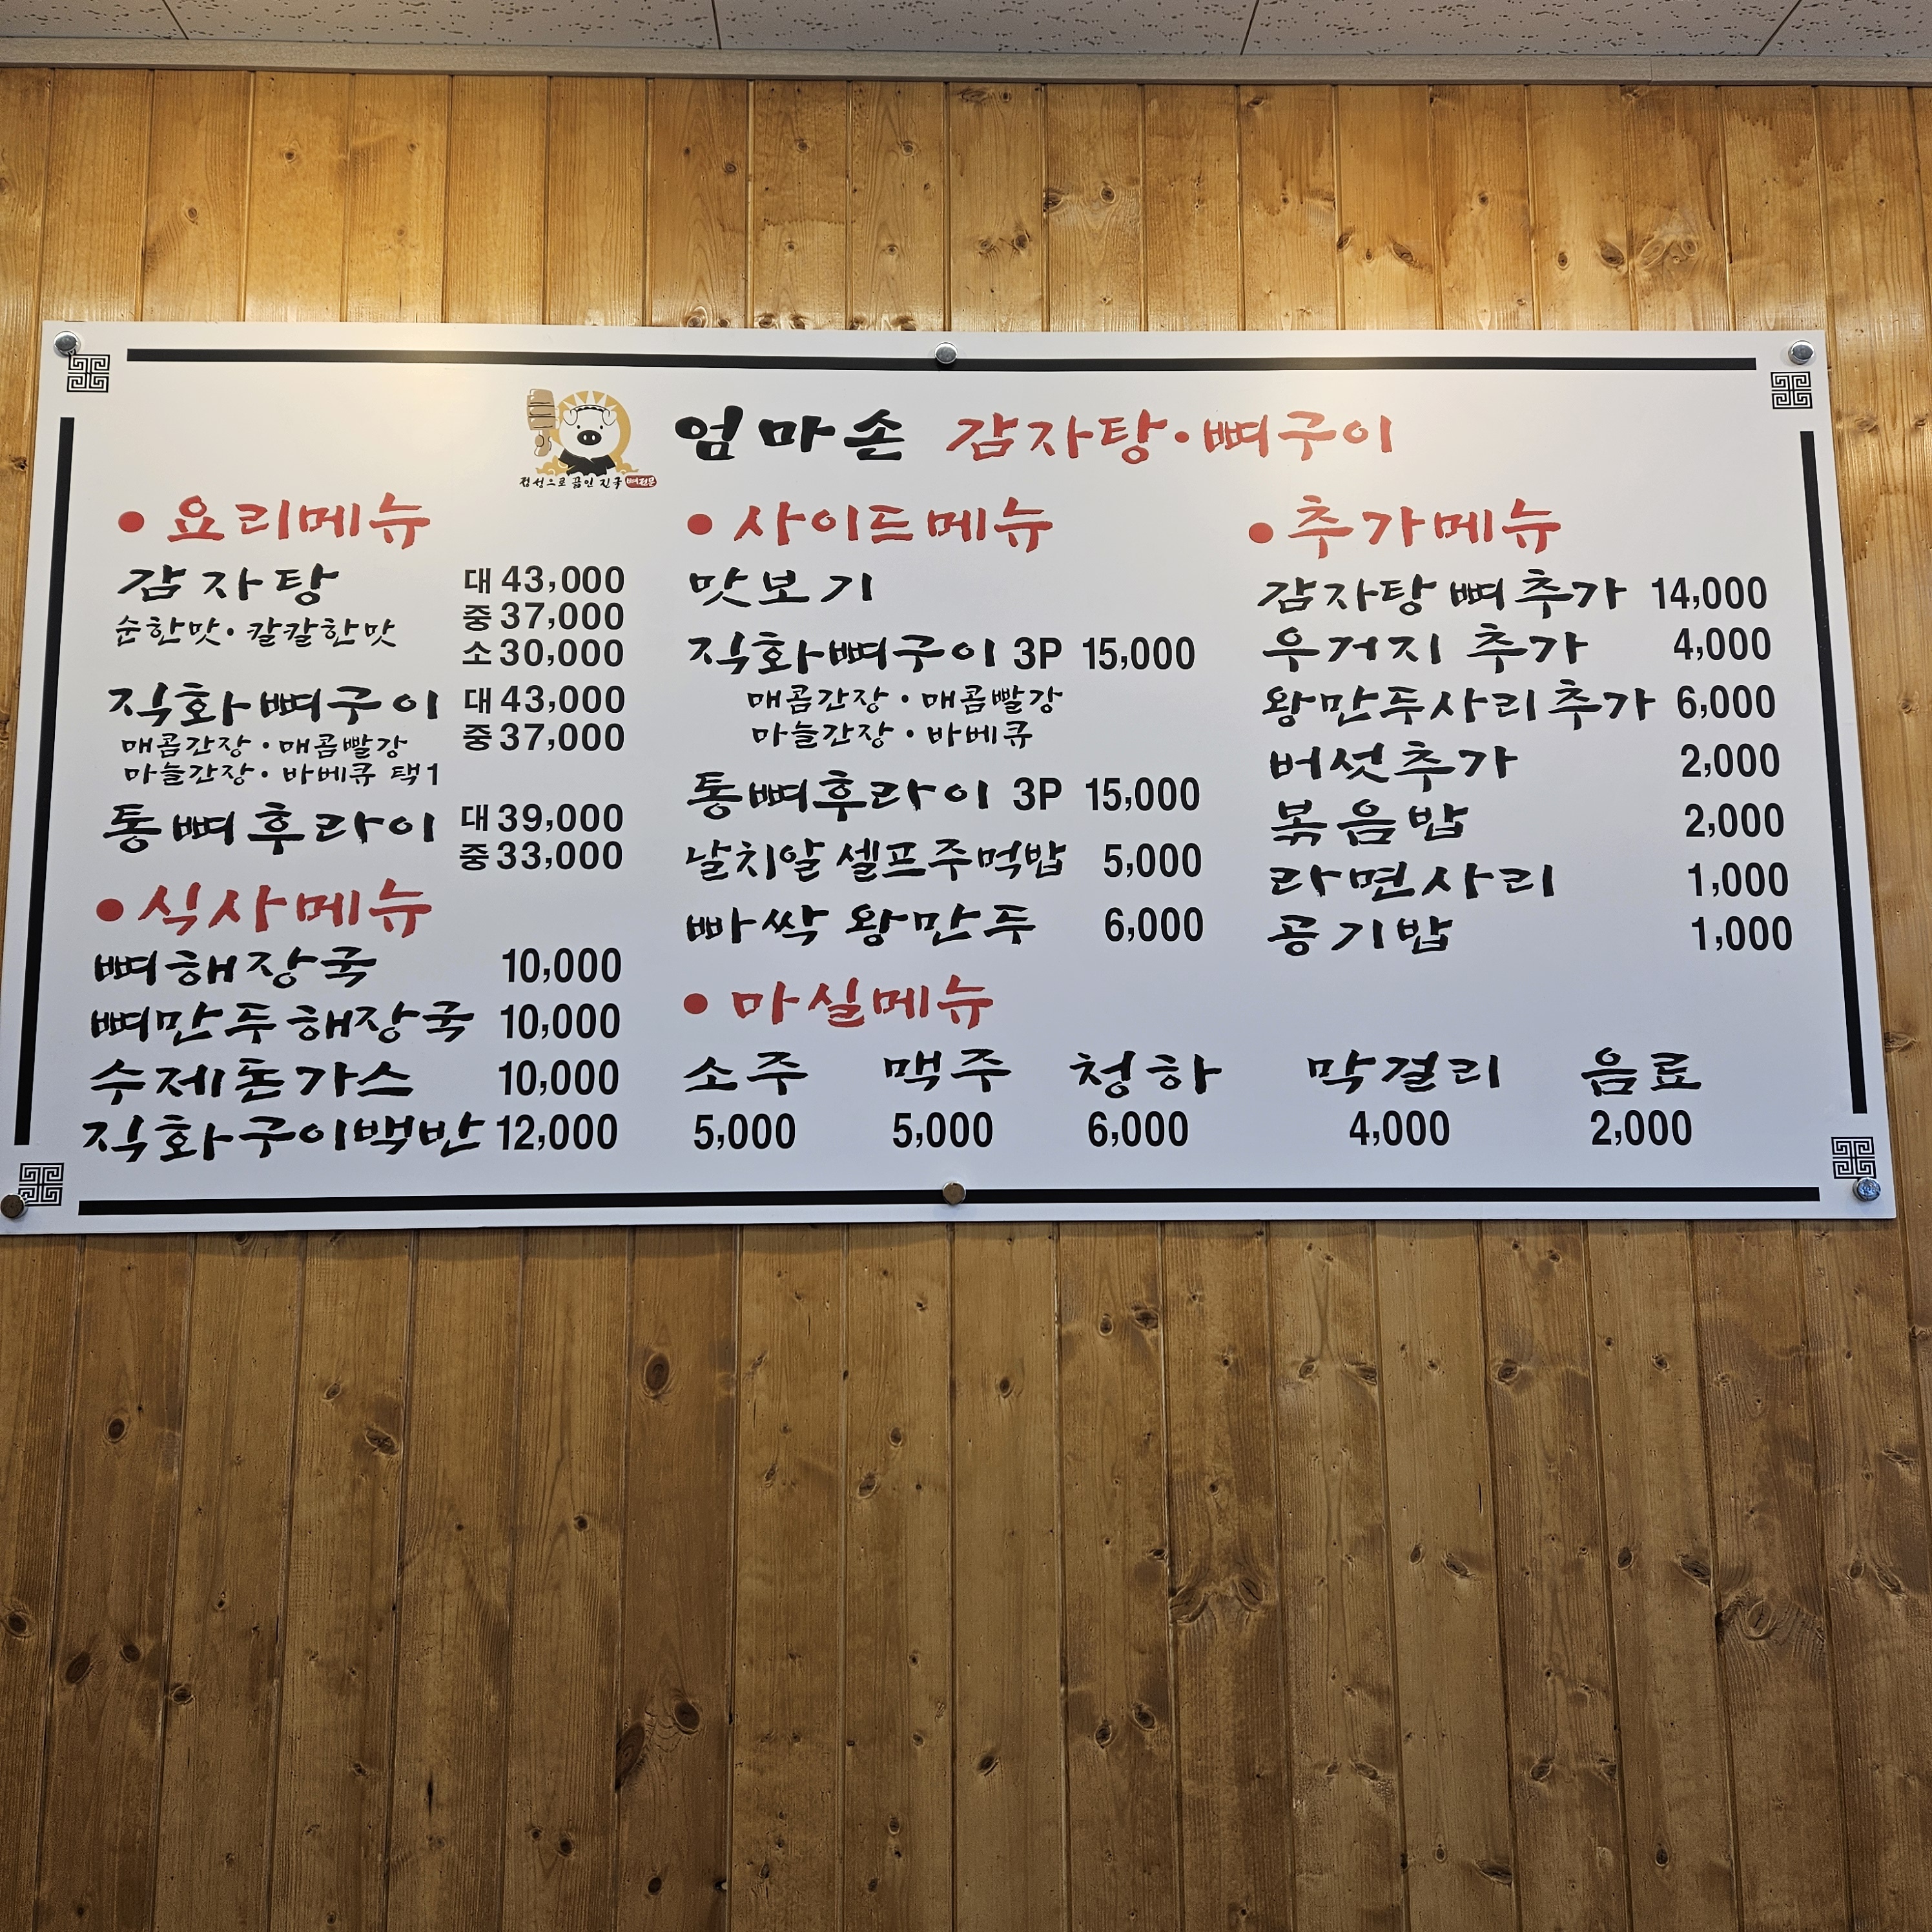 엄마손 감자탕·뼈구이
정성으로 끓인 진국 뼈전문
• 요리메뉴
감자탕 대 43,000
순한맛·칼칼한맛 중 37,000
소 30,000
직화뼈구이 대 43,000
매콤간장·매콤빨강 중 37,000
마늘간장·바베큐 택1
통뼈후라이 대 39,000
중 33,000
• 식사메뉴
뼈해장국 10,000
뼈만두해장국 10,000
수제돈가스 10,000
직화구이백반 12,000
• 사이드메뉴
맛보기
직화뼈구이 3P 15,000
매콤간장·매콤빨강
마늘간장·바베큐
통뼈후라이 3P 15,000
날치알 셀프주먹밥 5,000
빠싹 왕만두 6,000
• 추가메뉴
감자탕 뼈 추가 14,000
우거지 추가 4,000
왕만두사리추가 6,000
버섯추가 2,000
볶음밥 2,000
라면사리 1,000
공기밥 1,000
• 마실메뉴
소주 맥주 청하 막걸리 음료
5,000 5,000 6,000 4,000 2,000